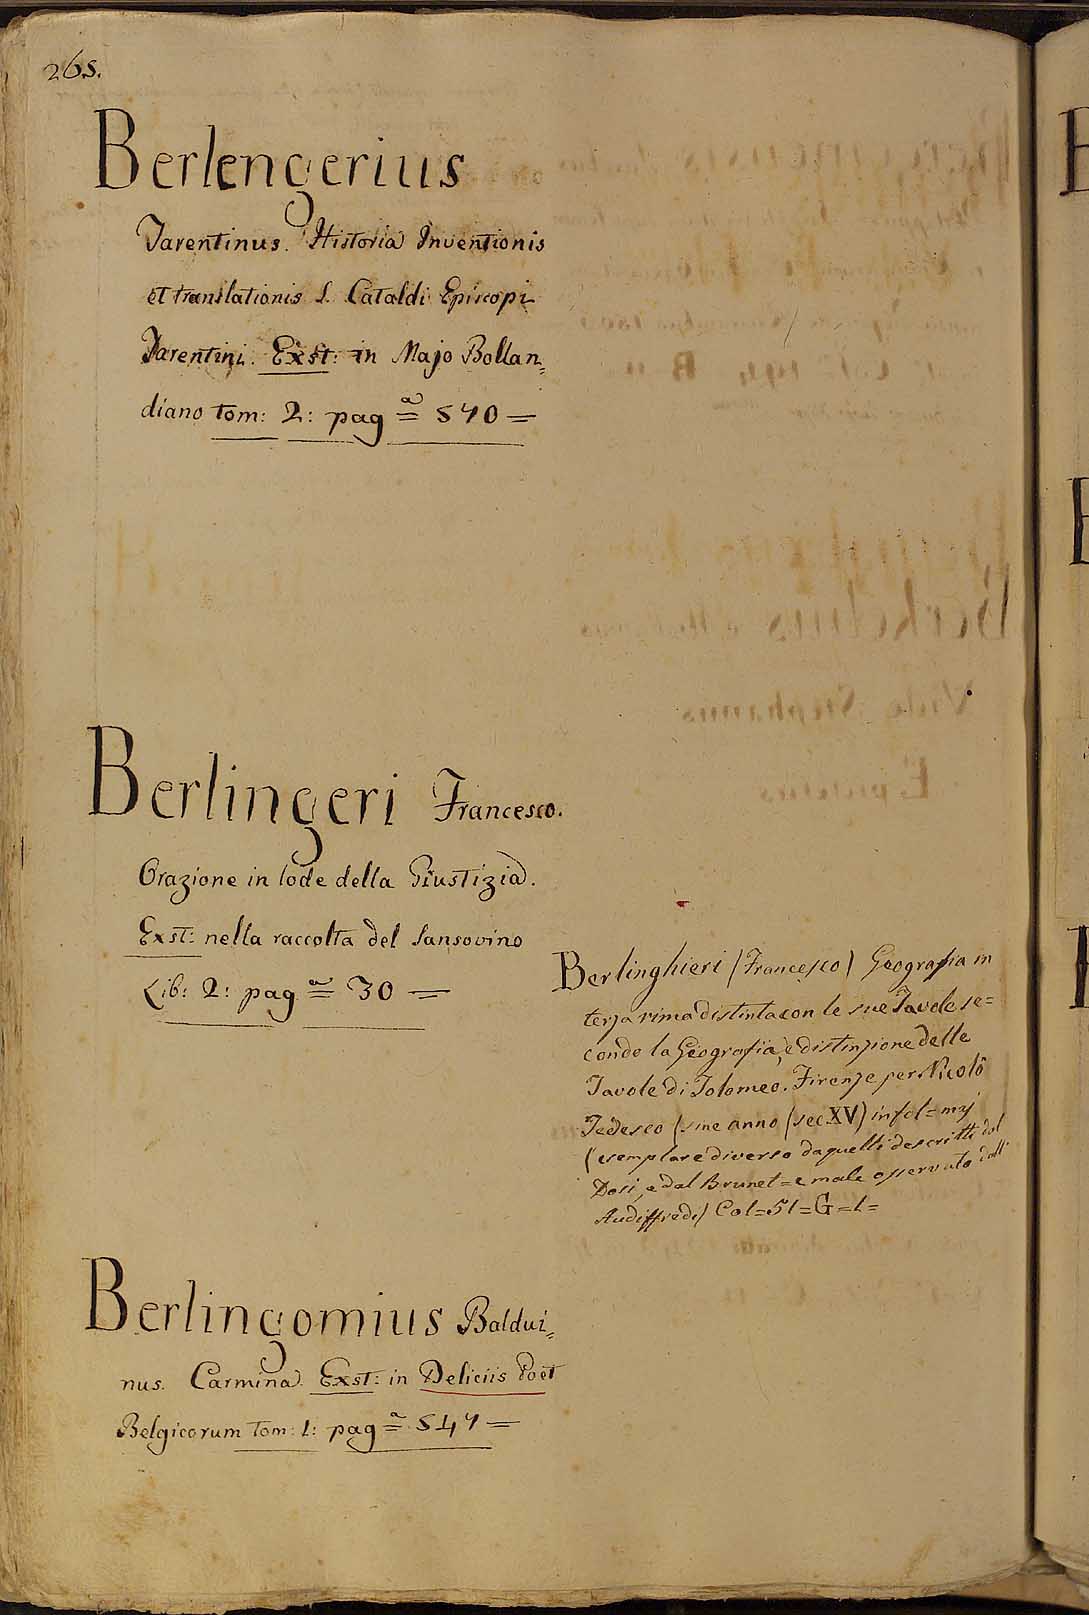 265.
Berlengerius
Tarentinus. Historia Inventionis
et translationis S. Cataldi Episcopi
Tarentini. Exst: in Majo Bollan=
diano tom: 2: pagᵃ= 570=
Berlingeri Francesco.
Orazione in lode della Giustizia.
Exst: nella raccolta del Sansovino
Lib: 2: pagᵃ= 30=
Berlinghieri (Francesco) Geografia in
terza rima distinta con le sue Tavole se=
condo la Geografia, e distinzione delle
Tavole di Tolomeo. Firenze per Nicolò
Tedesco (sine anno (sec XV) in fol= maj
(esemplare diverso da quelli descritti dal
Dosi, e dal Brunet= e male osservato dall'
Audiffredi) Col=51=G=1=
Berlingomius Baldui=
nus. Carmina. Exst: in Deliciis Poët
Belgicorum tom: 1: pagᵃ= 547=
Vide Stephanus